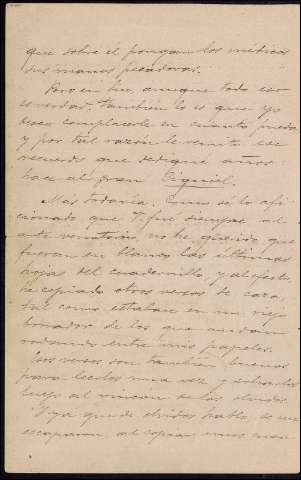 que sobre él pongan los médicos
sus manos pecadoras.
Pero en fin, aunque todo eso
es verdad, también lo es que yo
deseo complacerle en cuanto pueda
y por tal razón le remito ese
recuerdo que dediqué años
hace al gran
Más todavía. Como sé lo afi-
cionado que V. fué siempre al
arte no he querido que
fueran en blanco las últimas
hojas del cuadernillo, y al efecto,
he copiado otros versos de caza,
tal como estaban en un viejo
borrador de los que andan
rodando entre mis papeles.
Los versos son también buenos
para leerlos una vez y echarlos
luego al rincón de los olvidos.
Y ya que de olvidos hablo, se me
escaparon al copiar unos